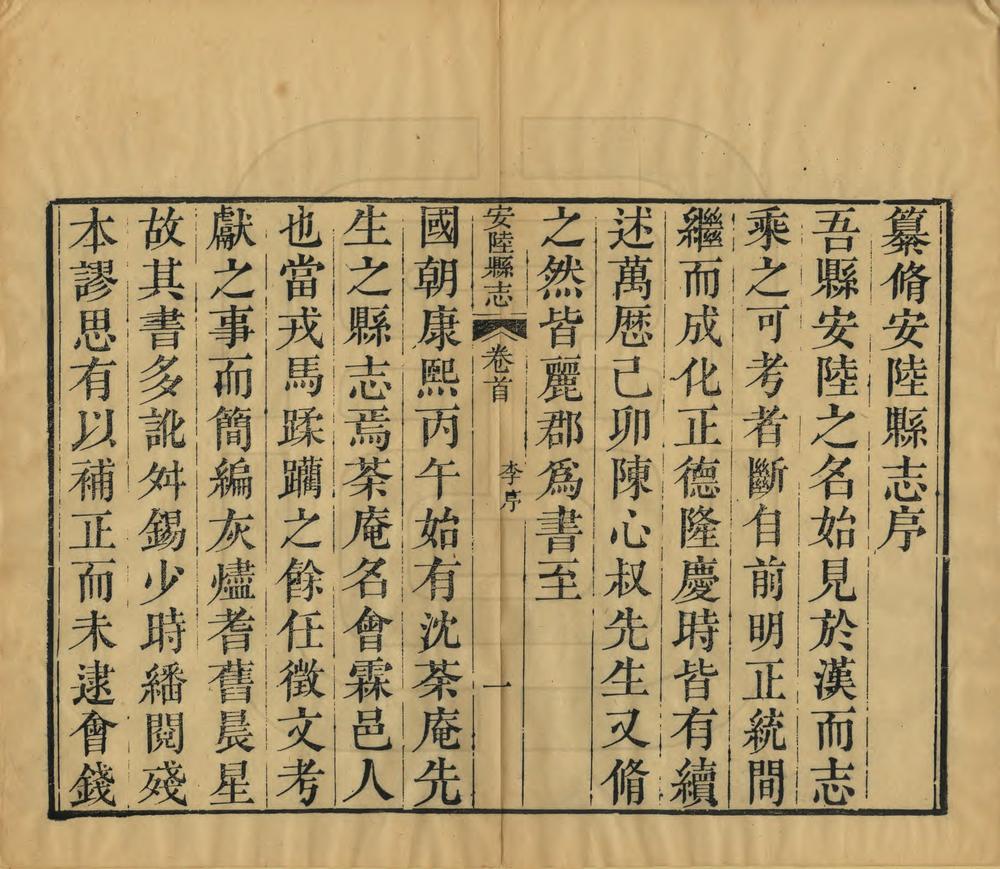 纂脩安陸縣志序
吾縣安陸之名始見於漢而志
乘之可考者斷自前明正統間
繼而成化正德隆慶時皆有續
述萬厯己卯陳心叔先生又脩
之然皆麗郡爲書至
安陸縣志
卷首
李序
一
國朝康熙丙午始有沈荼庵先
生之縣志焉荼庵名會霖邑人
也當戎馬蹂躪之餘任徵文考
獻之事而簡編灰燼耆舊晨星
故其書多訛舛錫少時繙閱殘
本謬思有以補正而未逮會錢